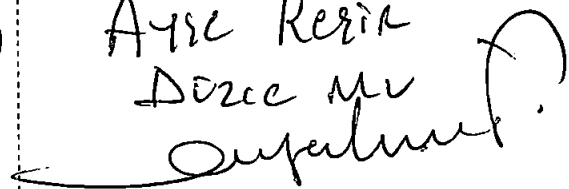 Ayşe Keşir
Düzce Mv